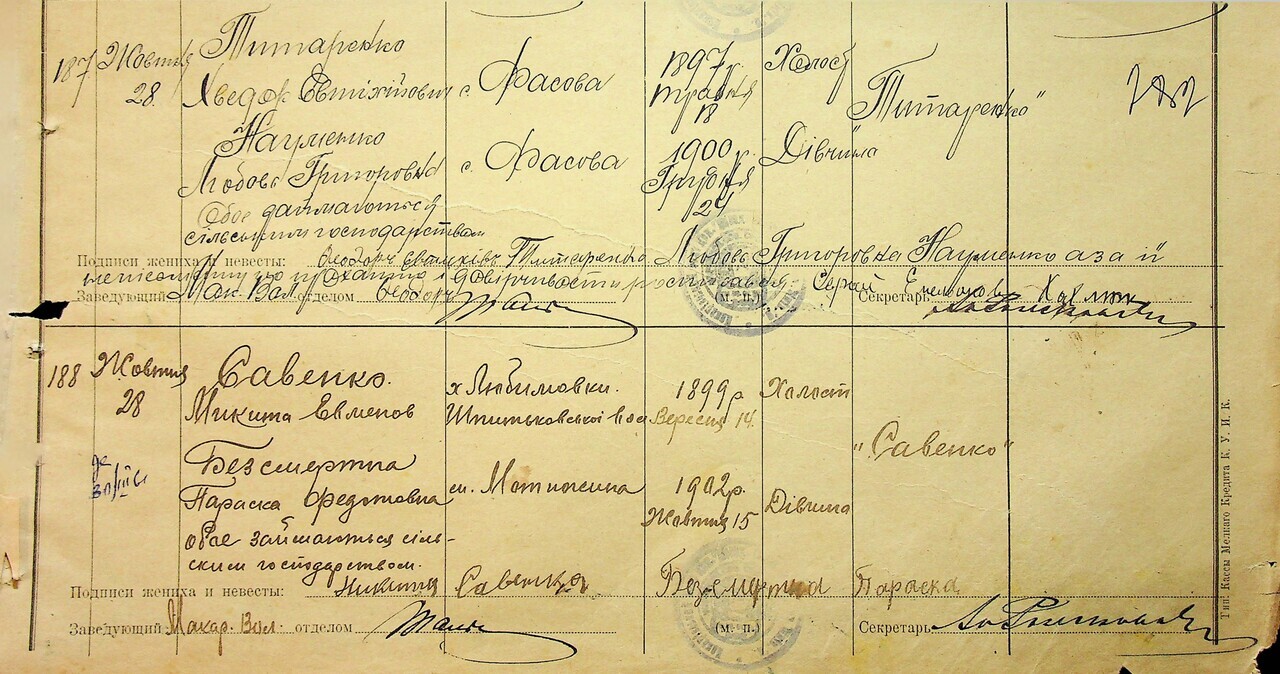 187 Жовтня 28
Титаренко
Хведор Євтихійович с. Фасова 1897 р. травня 18 Холост
„Титаренко“
Науменко
Любовь Григоровна с. Фасова 1900 р. Грудня 24 Дівчина
Обое займаються
сільським господарством
Подписи жениха и невесты: Феодоръ Евтихієв Титаренко Любовь Григоровна Науменко а за її
Заведующий Мак. Вол. отделом (м. п.) Секретарь
188 Жовтня 28
Савенко
Микита Евменов х Любимовки. 1899 р Вересня 14. Холост
„Савенко“
Безсмертна
Параска Федотовна м. Мотижина 1902 р. Жовтня 15 Дівчина
обое займаються сіль-
ским господарством.
Подписи жениха и невесты: Никита Савенко Безсмертна Параска
Заведующий Макар. Вол. отделом (м. п.) Секретарь
Тип. Кассы Мелкаго Кредита К. У. И. К.